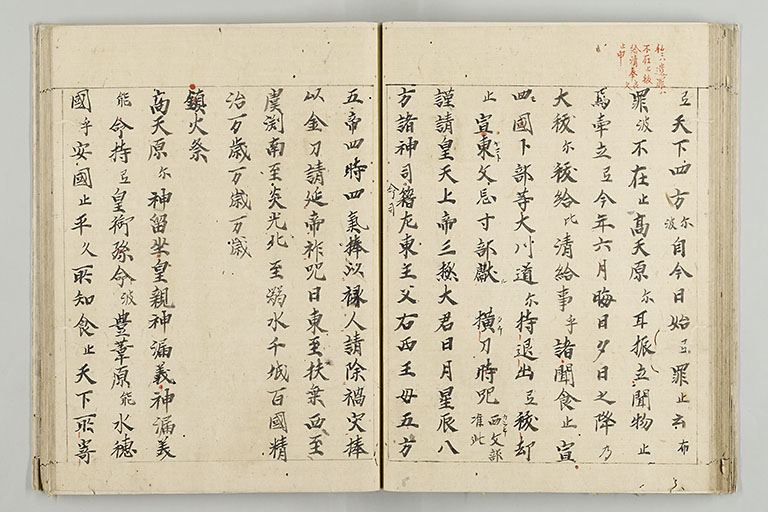 弖天下四方尓波自今日始弖罪止云布
罪波不在止高天原尓耳振立聞物止
馬牽立弖今年六月晦日夕日之降乃
大祓尓祓給比清給事乎諸聞食止宣
四國卜部等大川道尓持退出弖祓却
止宣東文忌寸部獻横刀時咒西文部准此
謹請皇天上帝三極大君日月星辰八
方諸神司命司籍左東王父右西王母五方
五帝四時四氣捧以祿人請除禍灾捧
以金刀請延帝祚咒曰東至扶桒西至
虞渕南至炎光北至弱水千城百國精
治万歳万歳万歳
鎮火祭
高天原尓神留坐皇親神漏義神漏義
能命持弖皇御孫命波豊葦原能水穂
國乎安國止平久所知食止天下所寄